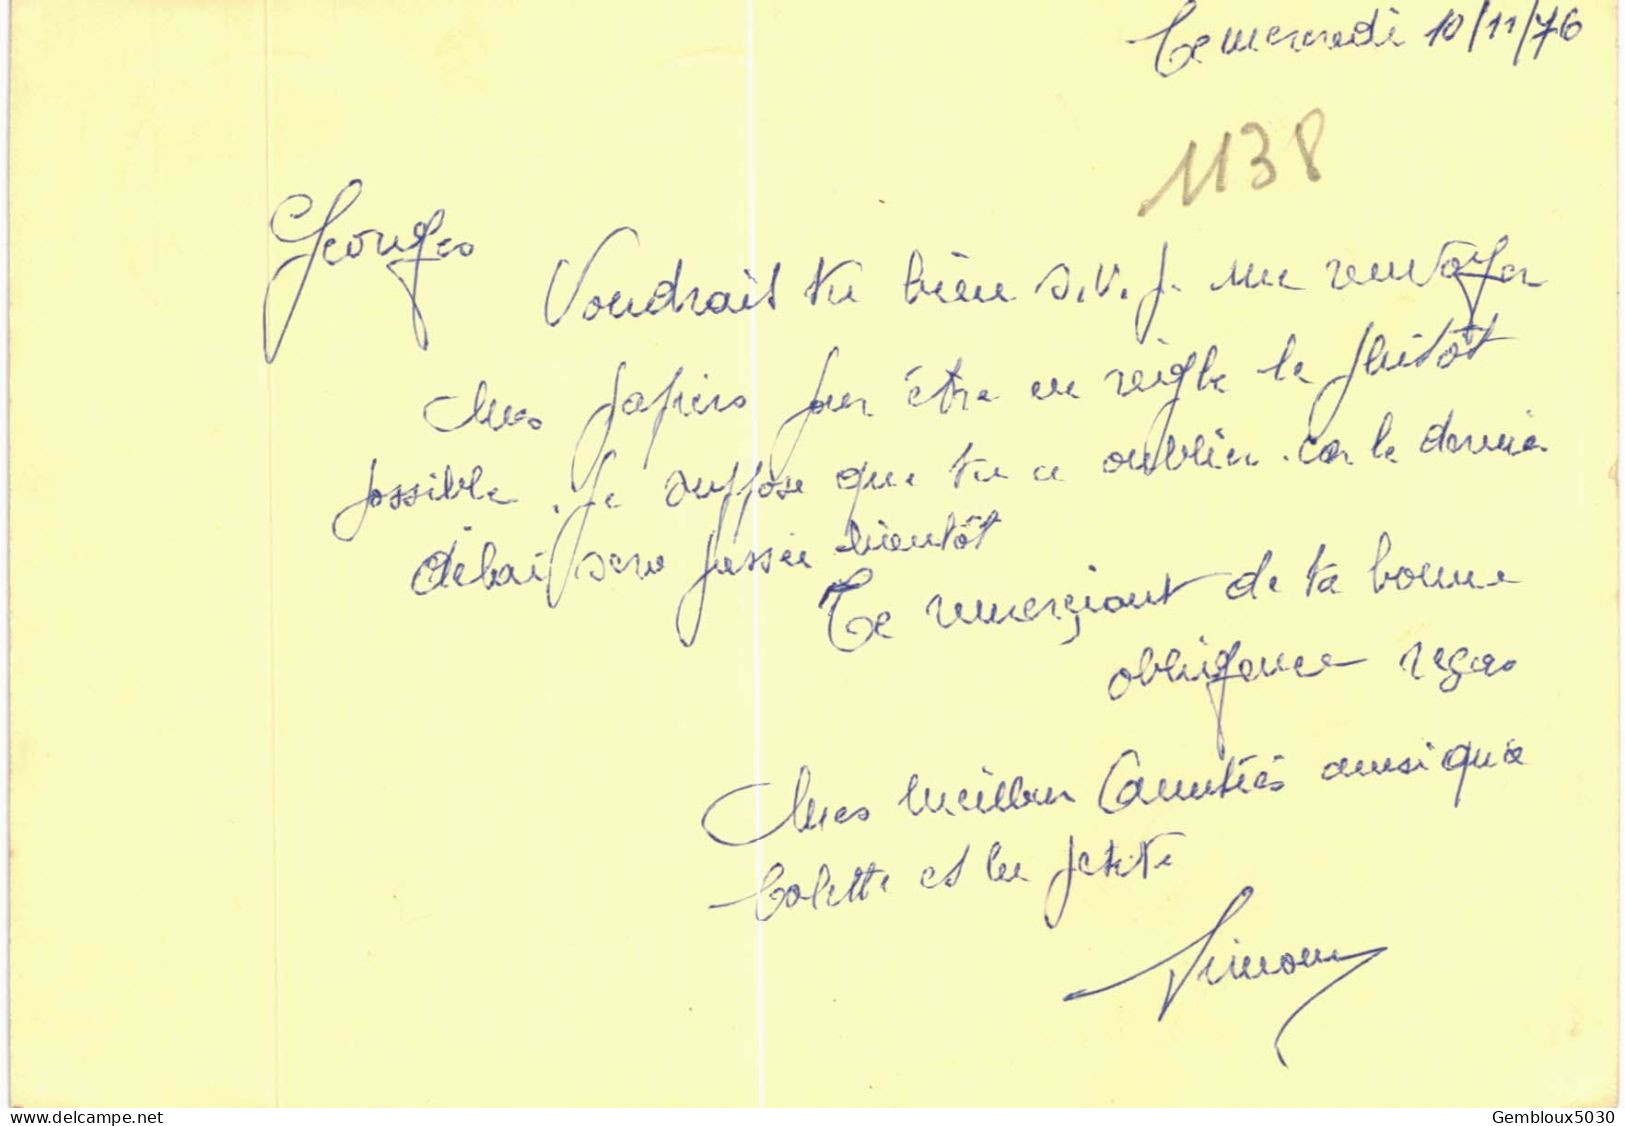 Ce mercredi 10/11/76
1138
Georges
Voudrait tu bien s.v.p. me renvoyer
mes papiers pour être en reigle le plutôt
possible. Je suppose que tu a oublier. Car le dernier
délai sera passée bientôt
Te remerçiant de ta bonne
obligeance reçois
Mes meilleur amitiés ainsi qu'a
Colette et la petite
Simone
www.delcampe.net
Gembloux5030